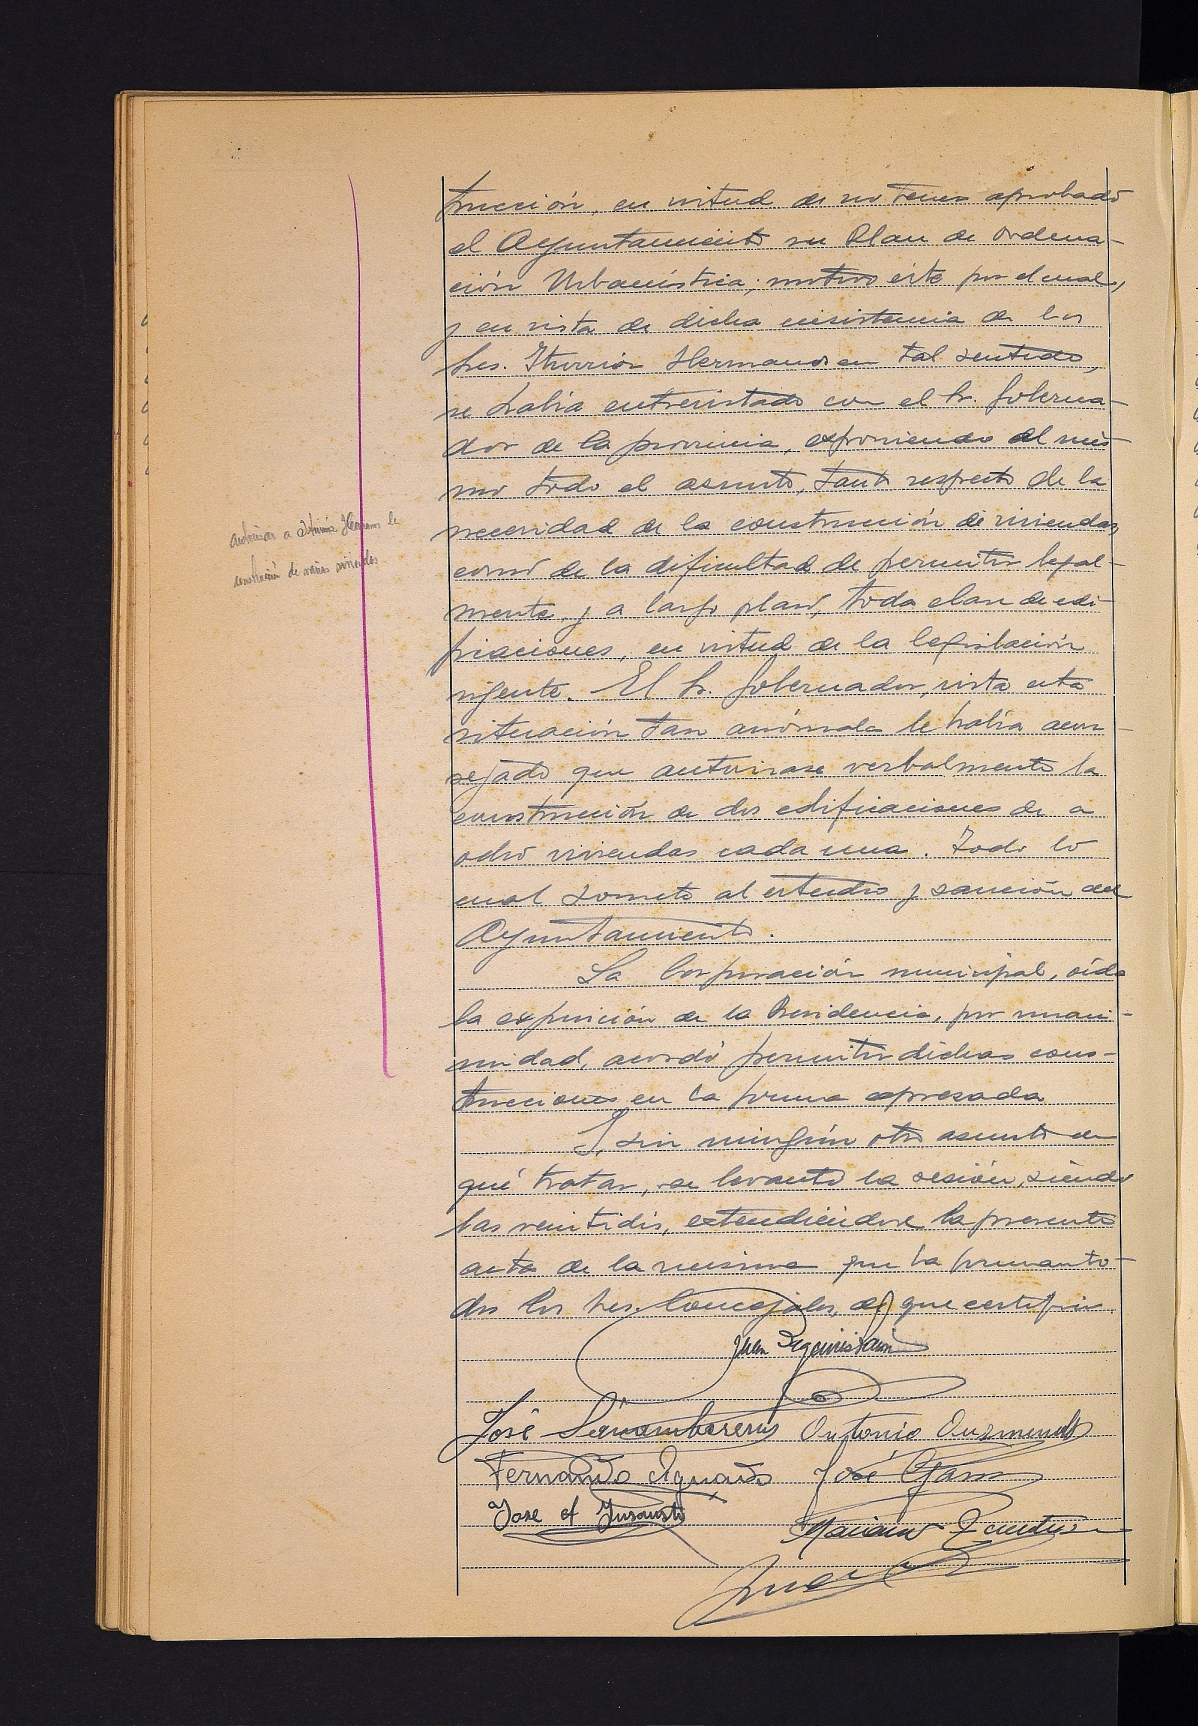 trucción, en virtud de no tener aprobado
el Ayuntamiento su Plan de Ordena-
ción Urbanística; motivo éste por el cual,
y en vista de dicha insistencia de los
Sres. Iturrioz Hermanos en tal sentido,
se había entrevistado con el Sr. Goberna-
dor de la provincia, exponiendo al mis-
mo todo el asunto, tanto respecto de la
necesidad de la construcción de viviendas,
como de la dificultad de permitir legal-
mente, y a largo plazo, toda clase de edi-
ficaciones, en virtud de la legislación
vigente. El Sr. Gobernador, vista esta
situación tan anómala le había acon-
sejado que autorizase verbalmente la
construcción de dos edificaciones de a
ocho viviendas cada una. Todo lo
cual somete al estudio y sanción del
Ayuntamiento.
La Corporación municipal, oída
la exposición de la Presidencia, por unani-
midad, acordó permitir dichas cons-
trucciones en la forma expresada
Y, sin ningún otro asunto de
qué tratar, se levantó la sesión, siendo
las veintidós, extendiéndose la presente
acta de la misma que la firman to-
dos los Sres. Concejales, de que certifico
autorizar a Iturrioz Hermanos la
construcción de varias viviendas
Juan
José Antonio
Fernando Aguado José
Jose Mª Insausti
Mariano